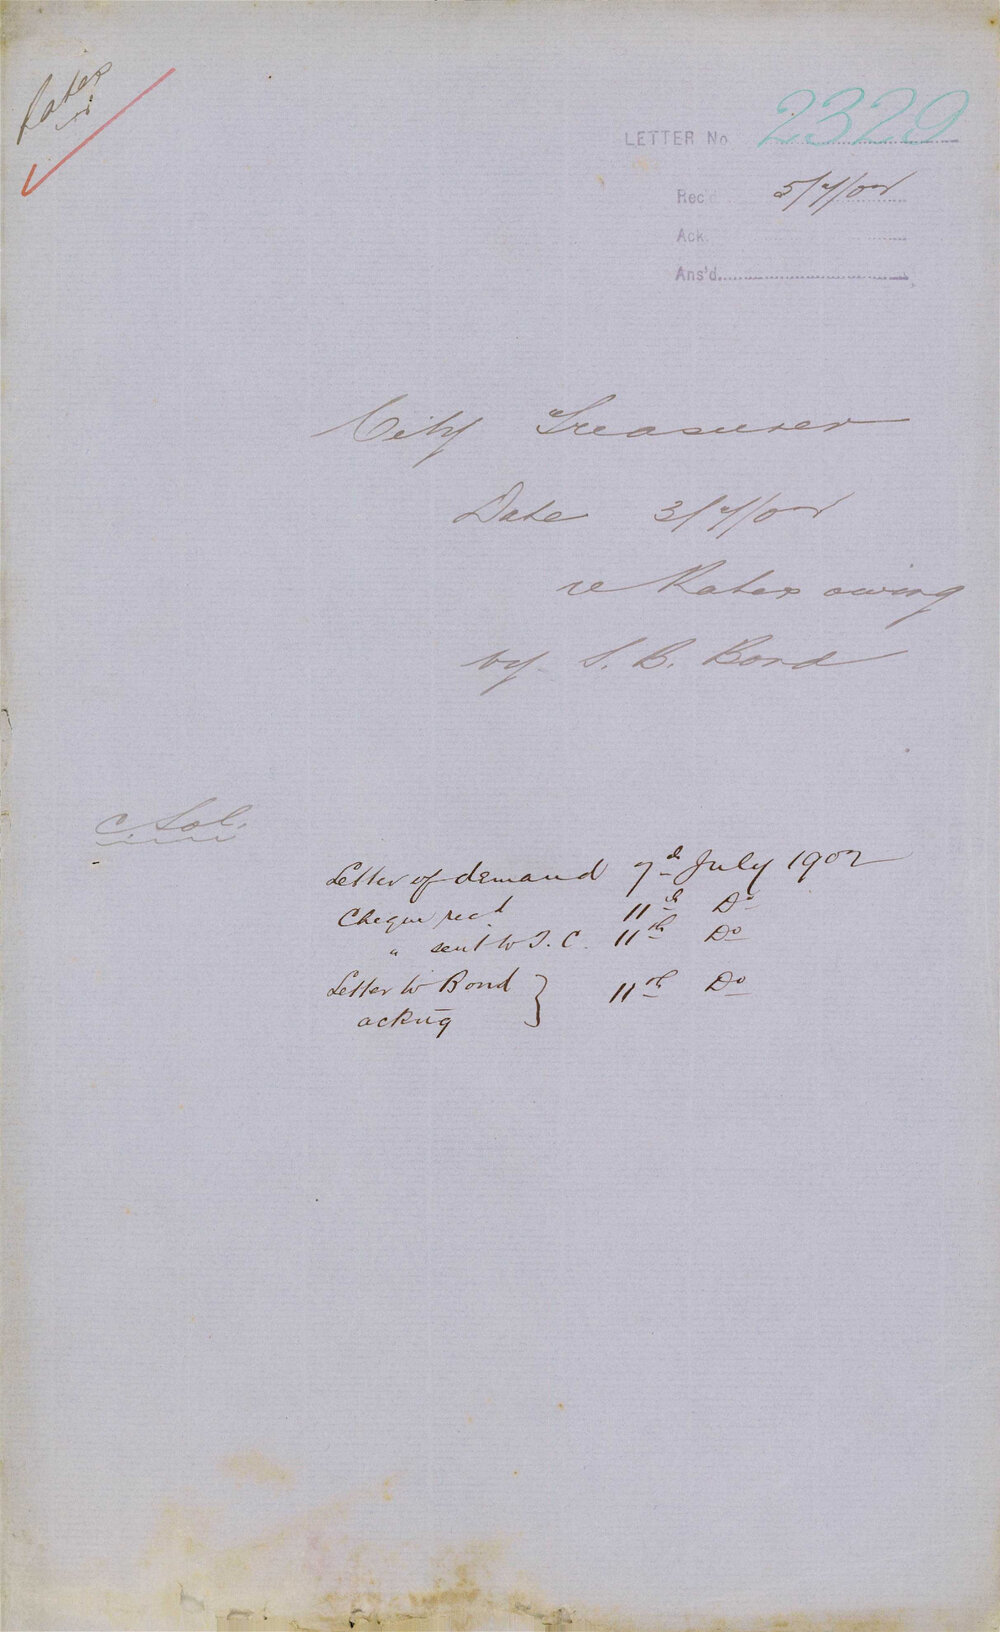 Rates
LETTER No 2329
Rec'd 5/7/02
Ack.
Ans'd.
City Treasurer
Date 3/7/02
re Rates owing
by S. B. Bond
C Sol.
Letter of demand 7th July 1902
Cheque recd 11th Do
" sent to T. C. 11th Do
Letter to Bond } 11th Do
acking